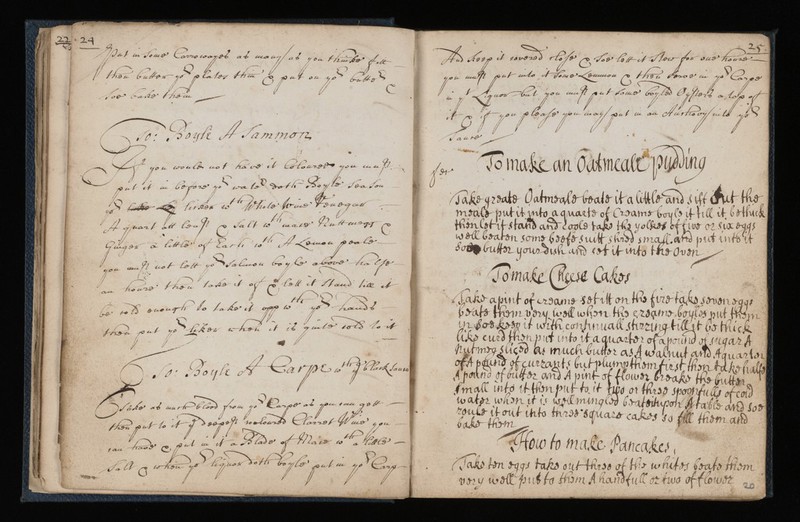 22 24
Put in some Carrowayes as many as you thinke fitt
then butter yᵉ plates thin & put on yᵉ butter &
soe bake them
To: Boyle A Sammon
If you would not have it Coloured you must
put it in before yᵉ water doth Boyle season
yᵉ licker wᵗʰ White Wine Vinegar
A quart att least & Salt wᵗʰ mace Nuttmegs &
Ginger a little of Each wᵗʰ A Lemon peale
you must not lett yᵉ Salmon boyle above halfe
an houre then take it of & lett it Stand till it
be cold enough to take it upp wᵗʰ yoʳ hands
then put yᵉ Liker when it is quite cold to it
To: Boyle A Carpe wᵗʰ yᵉ black Sauce
Take as much blood from yᵉ Carpe as you can gett
then put to it yᵉ deepest coulored Clarret Wine you
can have & put in it a Blade of Mace wᵗʰ a little
Salt & when yᵉ liquor doth boyle put in yᵉ Carp
25
And keep it covered close & soe lett it Stew for one houre
you must put into it some Lemmon & then serve in yᵉ Carpe
in yᵗ Liquor but you must put some boyled Oysters a top of
it & if you please you may put in an Anchovy into yᵉ
Sauce
To make an Oatmeale pudding
Take greate Oatmeale beate it a little and sift out the
meale put it into a quarte of Creame boyle it till it be thick
then let it stand and coole take the yolkes of five or six eggs
well beaten some beefe suitt shred small and put into it
soe butter your dish and set it into the Oven
To make Cheese Cakes
Take a pint of creame set it on the fire take seven eggs
beate them very well when the creame boyles put them
in soe keep it with continuall stirring till it be thick
like curd then put into it a quarter of a pound of sugar A
Nutmeg sliced as much butter as A walnut and A quarter
of A pound of currants but plump them first then take halfe
A pound of butter and A pint of flower breake the butter
small into it then put to it two or three spoonfulls of cold
water when it is well mingled beate it upon A table and soe
roule it out into three square cakes so fill them and
bake them
How to make Pancakes
Take ten eggs take out three of the whites beate them
very well put to them A handfull or two of flower
20